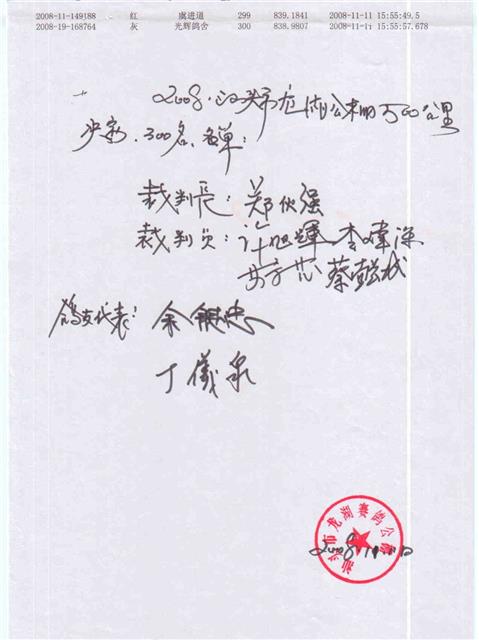 2008-11-149188 红 虞进道 299 839.1841 2008-11-11 15:55:49.5
2008-19-168764 灰 光辉鸽舍 300 839.9807 2008-11-11 15:55:57.678
2008.汕头市龙湖公棚500公里
决赛.300名.名单:
裁判长:郑伙强
裁判员:许旭辉 李
蔡
鸽友代表:余银忠
丁仪泉
汕头市龙湖赛鸽公棚
2008.11.12